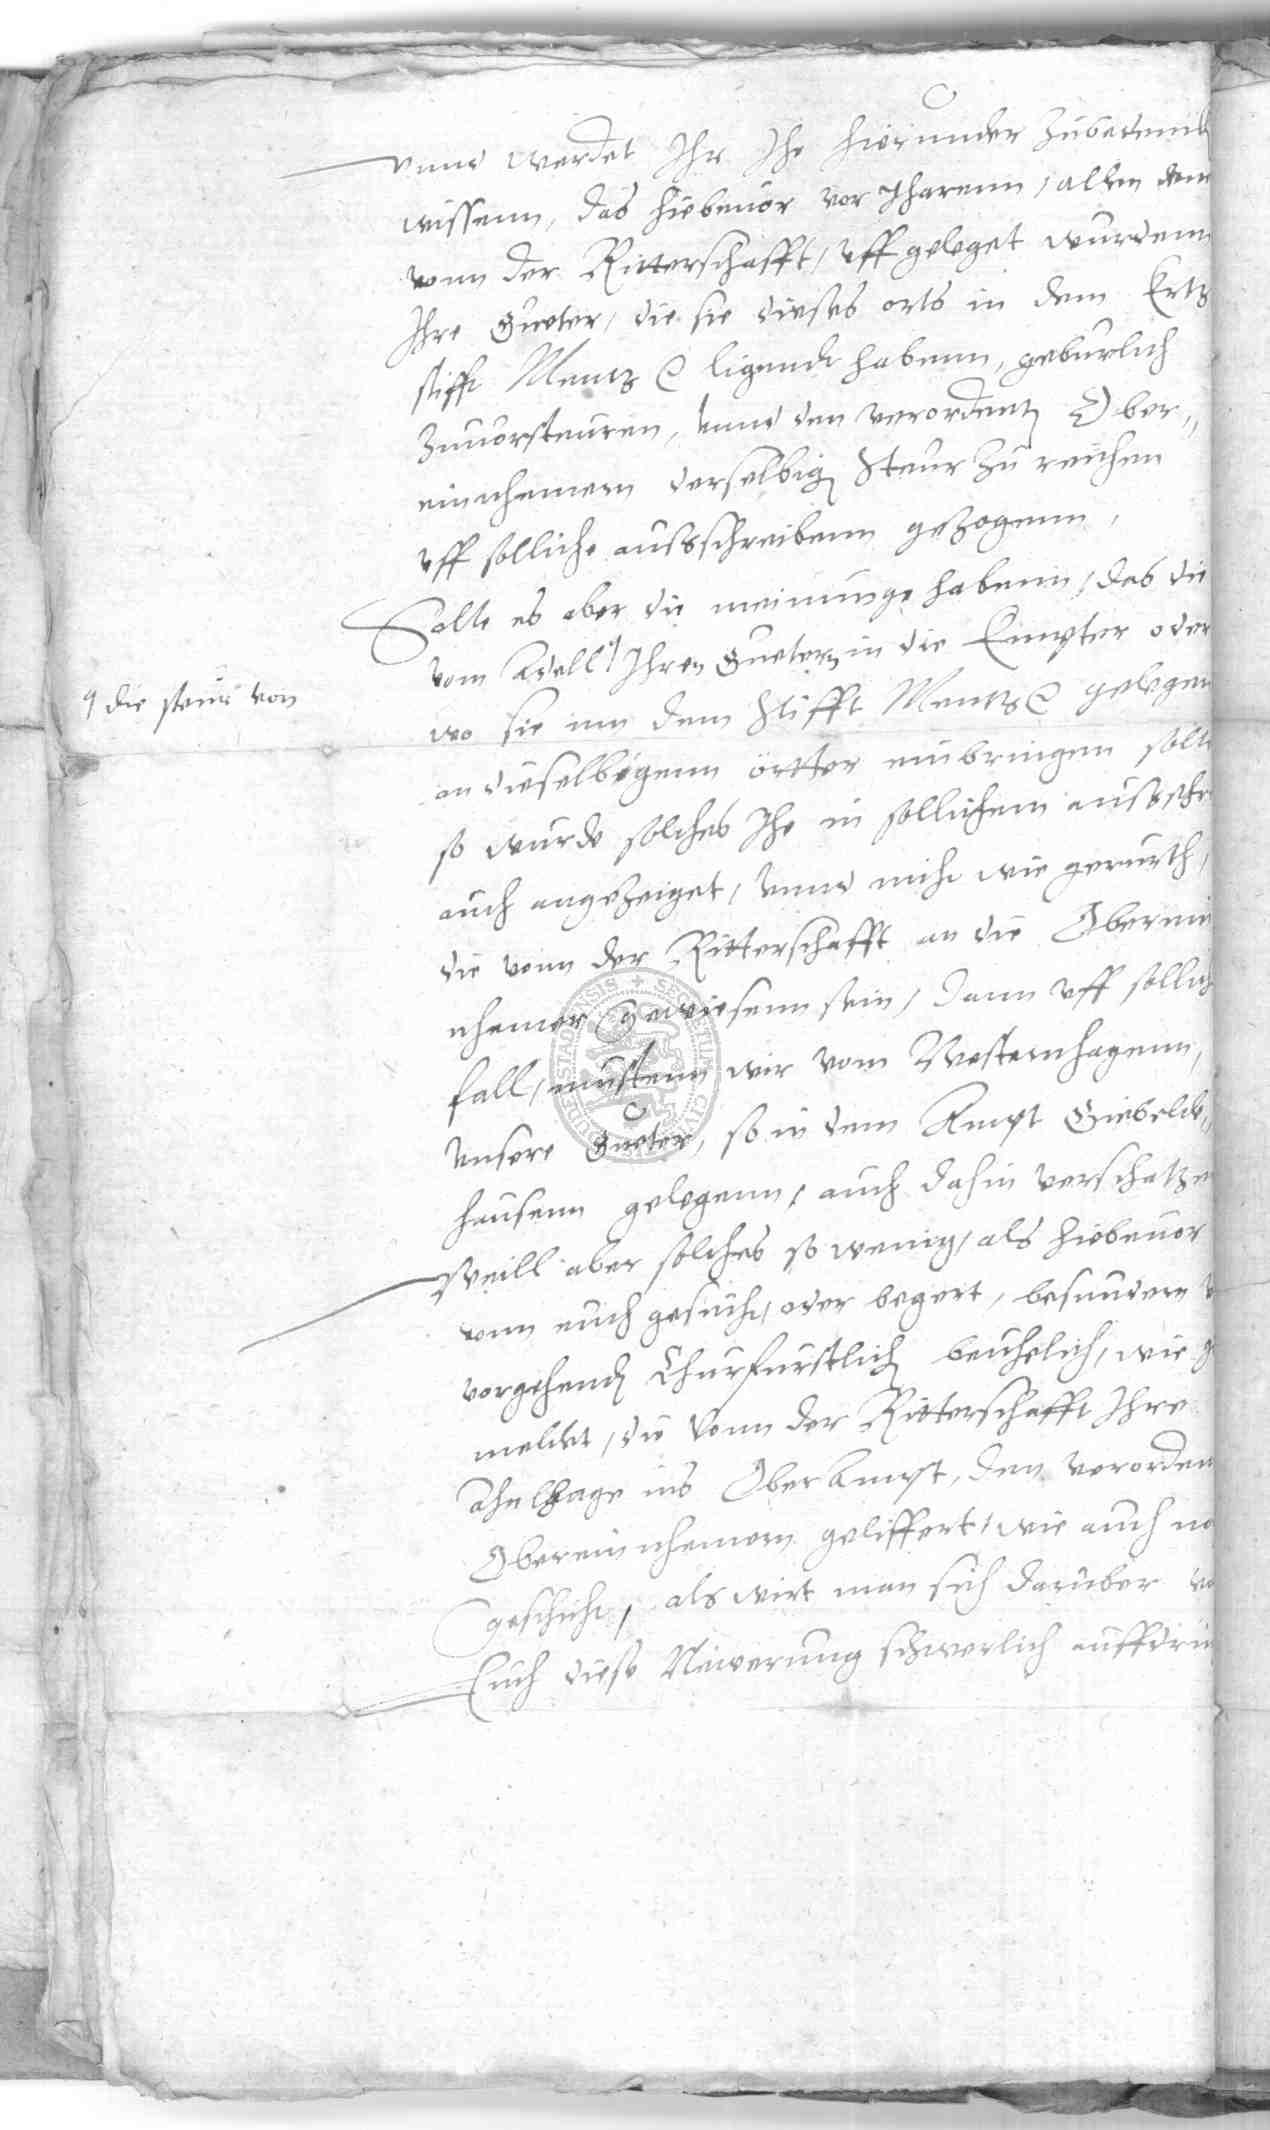 vnnd werdet Ihr Ihe hierunder zubedenck
wissenn, das hiebeuor vor Iharenn, allen denn
vonn der Ritterschafft, vffgeleget wurdenn
Ihre Gueter, die sie dieses orts in dem Ertz
stifft Mentz ligendt habenn, geburlich
zuuorsteuren, vnnd den verordentenn Ober-
einnhemern derselbigen Steur zu reichen
vff solliche ausschreibenn gezogenn,
Solte es aber die meinunge habenn, das die
vom Adell Ihren Guetern in die Empter oder
die steur von
wo sie inn dem Stifft Mentz gelegen
an dieselbigenn örtter einbringen solt
so wurde solches Ihe in sollichem ausschr
auch angezeiget, vnnd nicht wie gerurth,
die vonn der Ritterschafft an die Oberein
nhemer gewiesenn sein, dann vff sollich
fall, mustenn wir vom Westernhagenn,
vnsere Gueter, so in dem Ampt Giebelde-
hausenn gelegenn, auch dahin verschatzen
Weill aber solches so wenig, als hiebeuor
von euch gesucht, oder begert, besundern v
vorgehenden Churfurstlich beuhelich, wie ge
meldet, die vonn der Ritterschafft Ihre
ins Oberampt, den verorden
Obereinnhemern geliffert, wie auch no
geschicht, als wirt man sich daruber vo
Euch diese Newerung schwerlich auffdrin
SECRETUM CIVI DUDERSTADENSIS